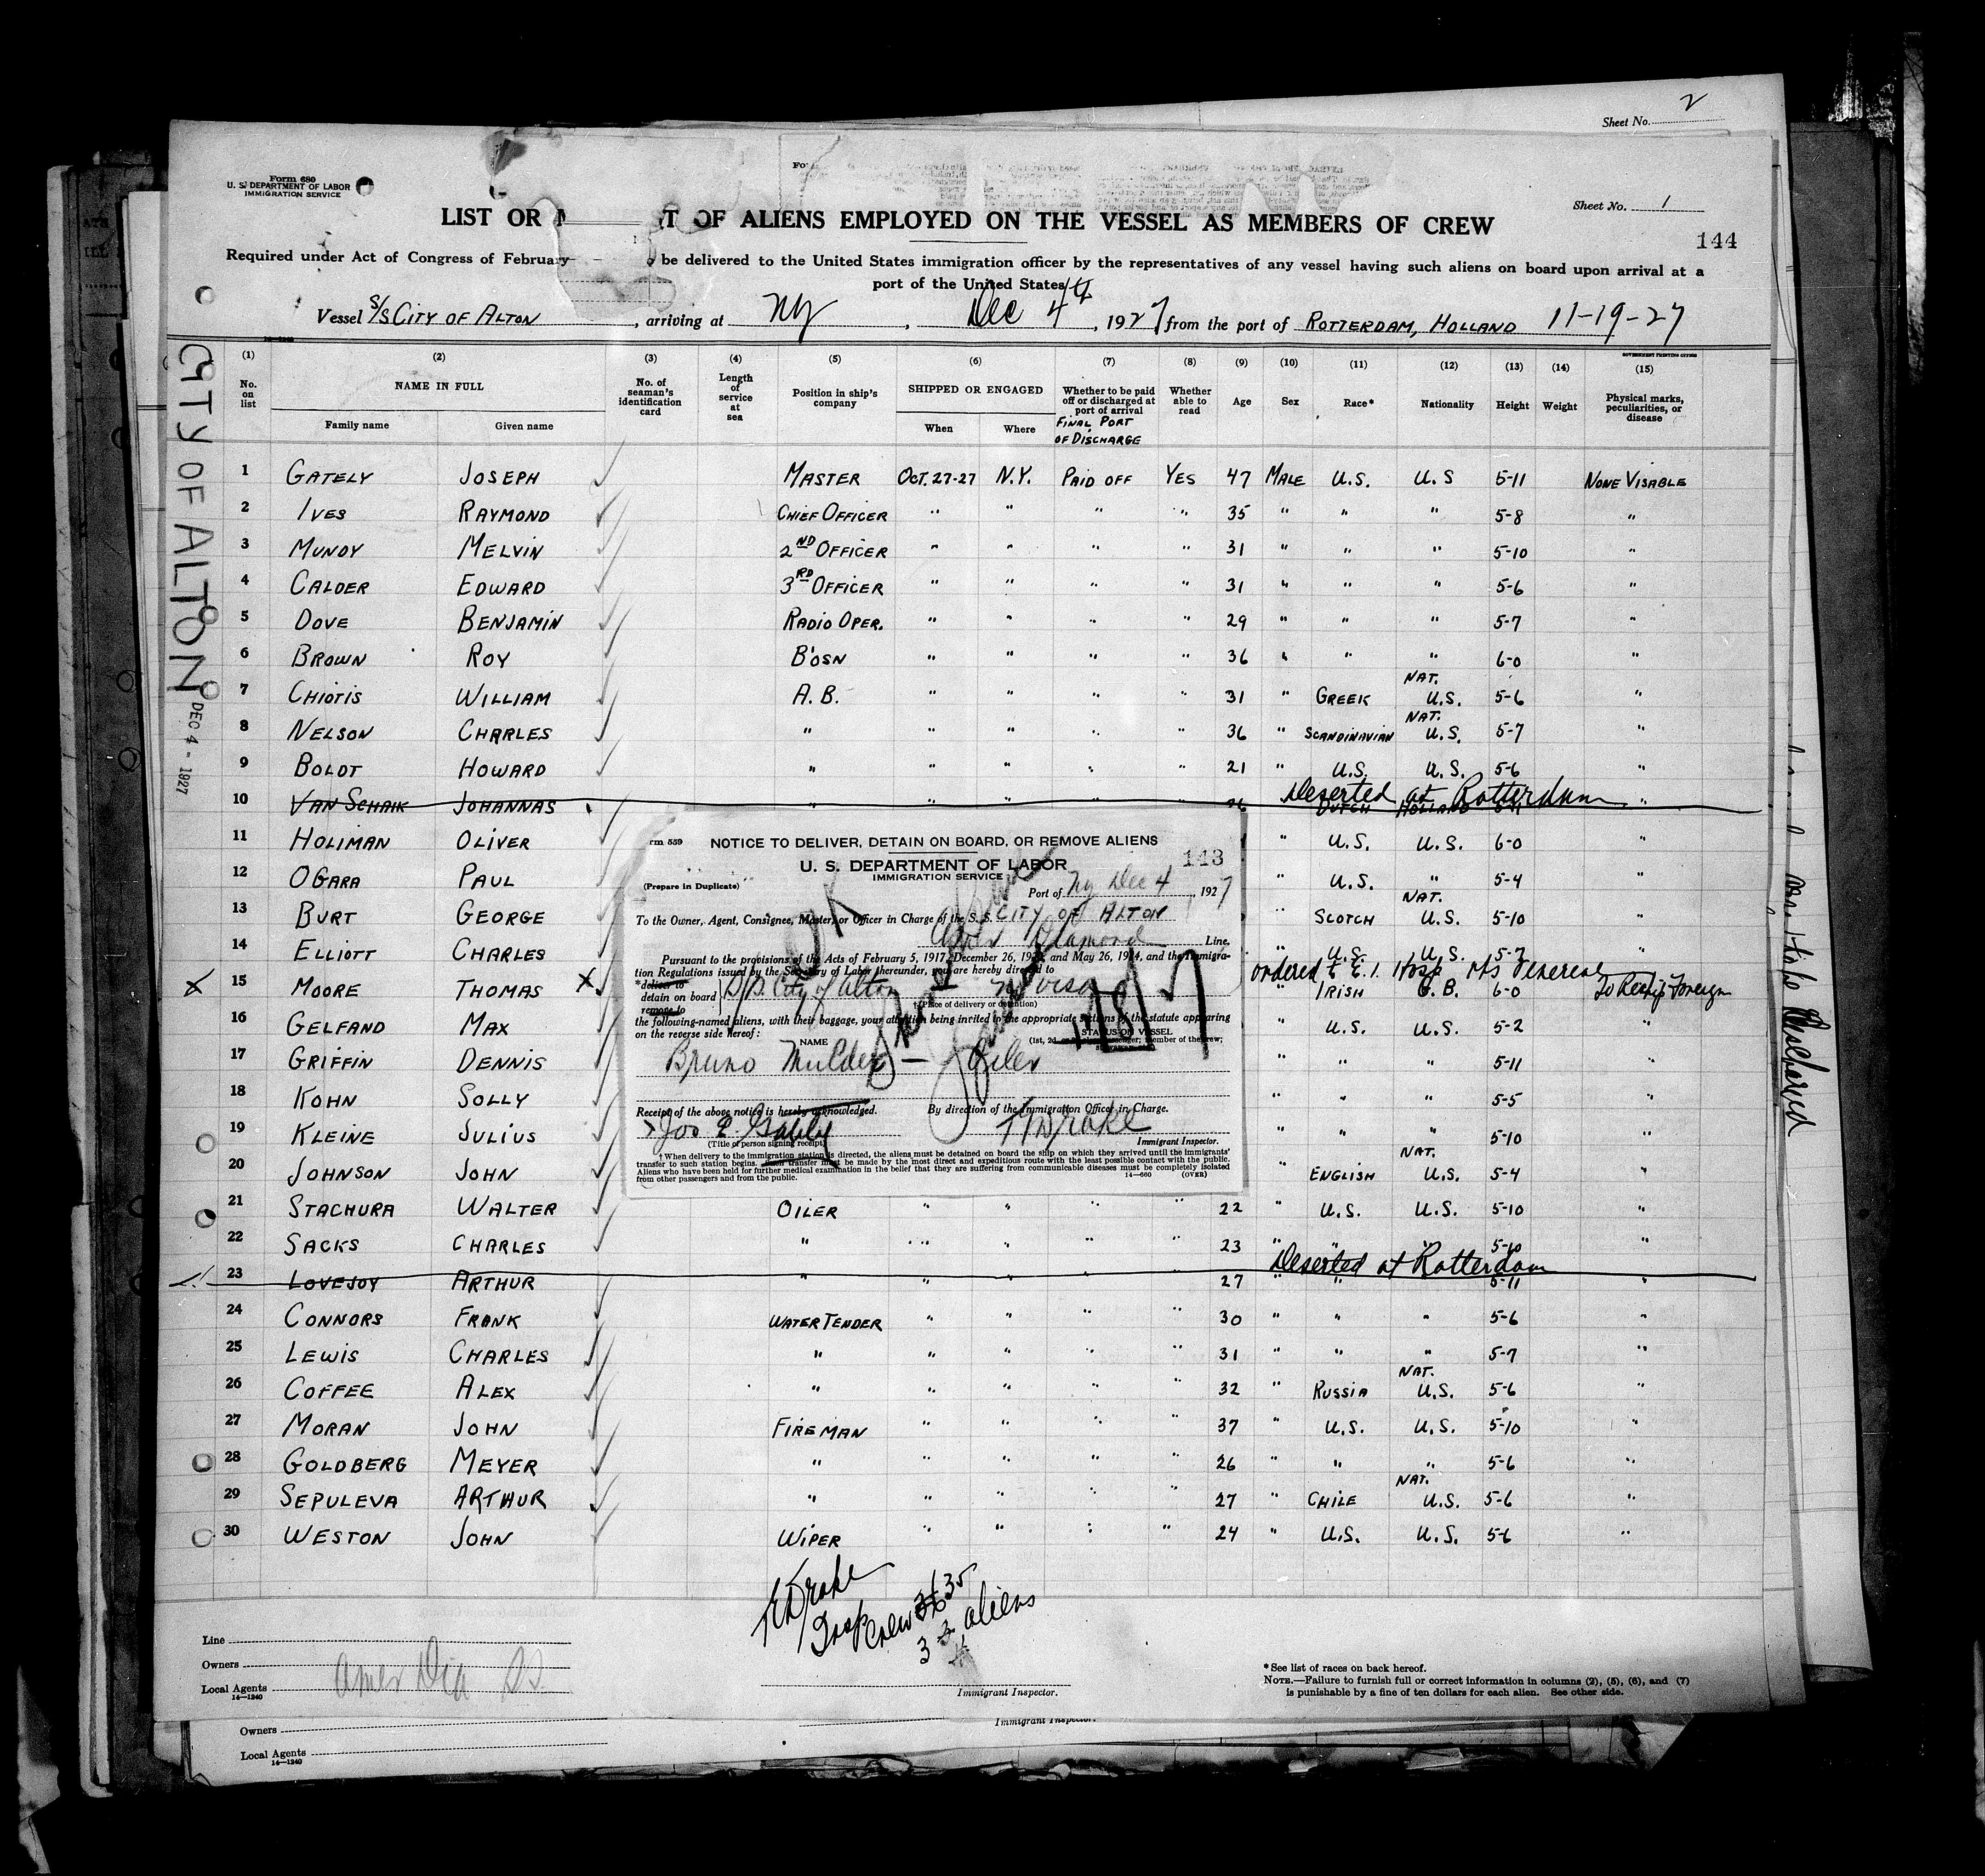 Sheet No. 2
Form 680
U. S. DEPARTMENT OF LABOR
IMMIGRATION SERVICE
Sheet No. 1
LIST OR M T OF ALIENS EMPLOYED ON THE VESSEL AS MEMBERS OF CREW
144
Required under Act of Congress of February be delivered to the United States immigration officer by the representatives of any vessel having such aliens on board upon arrival at a
port of the United States
Vessel S/S CITY OF ALTON, arriving at NY, Dec 4th, 1927 from the port of ROTTERDAM, HOLLAND 11-19-27
CITY OF ALTON DEC 4 - 1927
(1) (2) (3) (4) (5) (6) (7) (8) (9) (10) (11) (12) (13) (14) (15)
No. on list NAME IN FULL Family name Given name No. of seaman's identification card Length of service at sea Position in ship's company SHIPPED OR ENGAGED When Where Whether to be paid off or discharged at port of arrival FINAL PORT OF DISCHARGE Whether able to read Age Sex Race* Nationality Height Weight Physical marks, peculiarities, or disease
GOVERNMENT PRINTING OFFICE
1 GATELY JOSEPH MASTER OCT. 27-27 N.Y. PAID OFF YES 47 MALE U.S. U.S 5-11 NONE VISABLE
2 IVES RAYMOND CHIEF OFFICER " " " " 35 " " " 5-8 "
3 MUNDY MELVIN 2ND OFFICER " " " " 31 " " " 5-10 "
4 CALDER EDWARD 3RD OFFICER " " " " 31 " " " 5-6 "
5 DOVE BENJAMIN RADIO OPER. " " " " 29 " " " 5-7 "
6 BROWN ROY B'OSN " " " " 36 " " " 6-0 "
7 CHIOTIS WILLIAM A.B. " " " " 31 " GREEK NAT. U.S. 5-6 "
8 NELSON CHARLES " " " " " 36 " SCANDINAVIAN NAT. U.S. 5-7 "
9 BOLDT HOWARD " " " " " 21 " U.S. U.S. 5-6 "
Deserted at Rotterdam
10 VAN SCHAIK JOHANNAS " " " " " 26 " DUTCH HOLLAND "
11 HOLIMAN OLIVER " U.S. U.S. 6-0 "
12 OGARA PAUL " U.S. " 5-4 "
13 BURT GEORGE " SCOTCH NAT. U.S. 5-10 "
14 ELLIOTT CHARLES " U.S. U.S. 5-7 "
ordered to E. I. Hosp Venereal
15 MOORE THOMAS X " IRISH G.B. 6-0 To Reship Foreign
16 GELFAND MAX " U.S. U.S. 5-2 "
17 GRIFFIN DENNIS " " " 5-11 "
18 KOHN SOLLY " " " 5-5 "
19 KLEINE JULIUS " " " 5-10 "
20 JOHNSON JOHN " ENGLISH NAT. U.S. 5-4 "
21 STACHURA WALTER OILER " " " " 22 " U.S. U.S. 5-10 "
22 SACKS CHARLES " " " " " 23 " " " 5-10 "
Deserted at Rotterdam
23 LOVEJOY ARTHUR " " " " " 27 " " 5-11 "
24 CONNORS FRANK WATER TENDER " " " " 30 " " " 5-6 "
25 LEWIS CHARLES " " " " " 31 " " " 5-7 "
26 COFFEE ALEX " " " " " 32 " RUSSIA NAT. U.S. 5-6 "
27 MORAN JOHN FIREMAN " " " " 37 " U.S. U.S. 5-10 "
28 GOLDBERG MEYER " " " " " 26 " " " 5-6 "
29 SEPULEVA ARTHUR " " " " " 27 " CHILE NAT. U.S. 5-6 "
30 WESTON JOHN WIPER " " " " 24 " U.S. U.S. 5-6 "
rm 559
NOTICE TO DELIVER, DETAIN ON BOARD, OR REMOVE ALIENS
143
U. S. DEPARTMENT OF LABOR
IMMIGRATION SERVICE
(Prepare in Duplicate)
Port of NY Dec 4, 1927
To the Owner, Agent, Consignee, Master, or Officer in Charge of the S. S. CITY OF ALTON
Amer Diamond Line.
Pursuant to the provisions of the Acts of February 5, 1917, December 26, 1920, and May 26, 1924, and the Immigra-
tion Regulations issued by the Secretary of Labor thereunder, you are hereby directed to
*deliver to
detain on board S/S. City of Alton no visa
remove to
(Place of delivery or detention)
the following-named aliens, with their baggage, your attention being invited to the appropriate sections of the statute appearing
on the reverse side hereof:
NAME STATUS ON VESSEL
Bruno Mulder — Oiler
Receipt of the above notice is hereby acknowledged. By direction of the Immigration Officer in Charge.
Jos P. Gately T Drake
(Title of person signing receipt) Immigrant Inspector.
† When delivery to the immigration station is directed, the aliens must be detained on board the ship on which they arrived until the immigrants'
transfer to such station begins. Such transfer must be made by the most direct and expeditious route with the least possible contact with the public.
Aliens who have been held for further medical examination in the belief that they are suffering from communicable diseases must be completely isolated
from other passengers and from the public. 14—660 (OVER)
Drake
Insp Crew 36 35
3 aliens
Line
Owners Amer Dia SS
Local Agents
14—1240
Immigrant Inspector.
* See list of races on back hereof.
NOTE.—Failure to furnish full or correct information in columns (2), (5), (6), and (7)
is punishable by a fine of ten dollars for each alien. See other side.
Owners
Local Agents
14—1240
Immigrant Inspector.